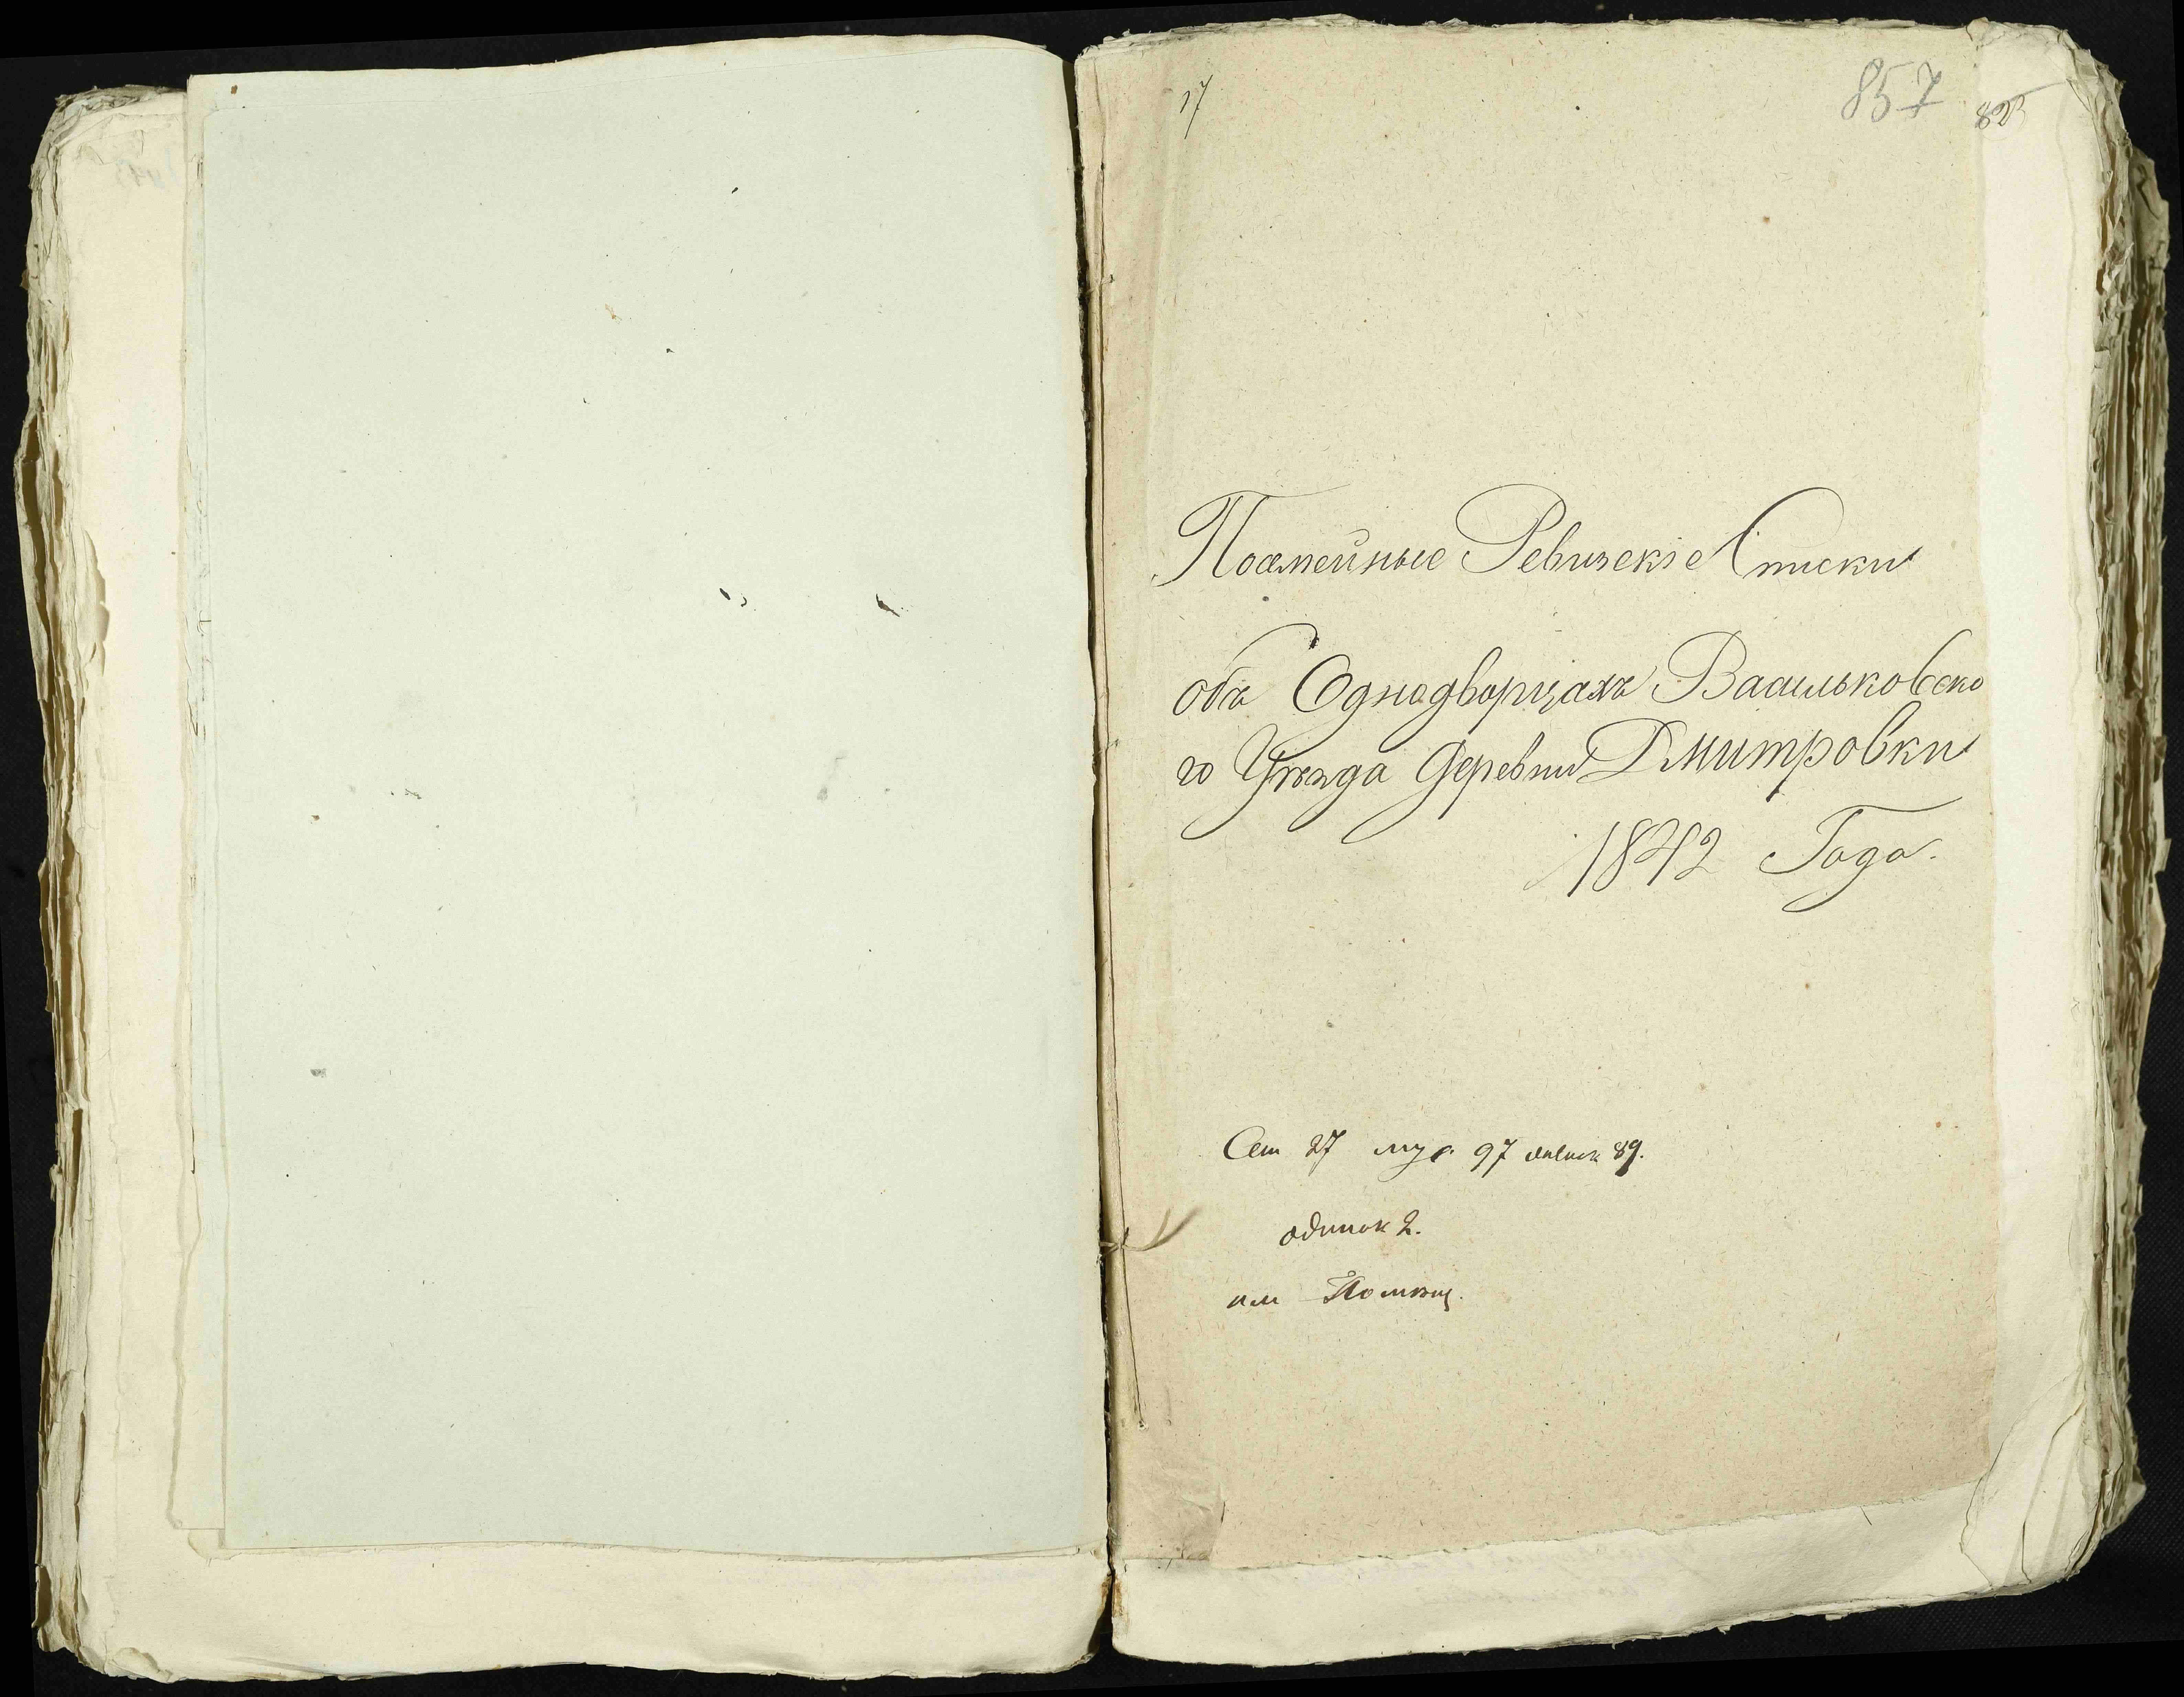 17
857
823
Посмейные Ревизскіе Списки
объ Однодворцахъ Васильковско
го Уѣзда деревни Дмитровки
1842 Года.
Сем 27 муж 97 женск 89.
одинок 2.
им Помѣщ.